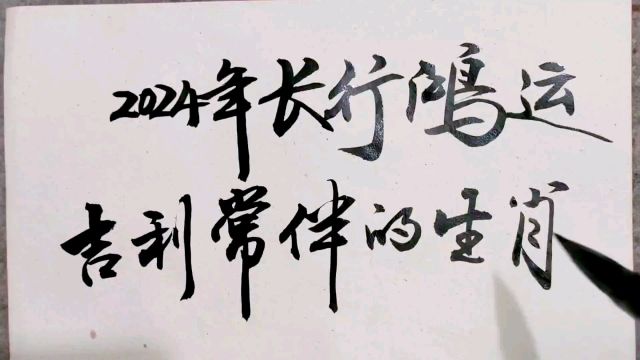 2024年长行鸿运
吉利常伴的生肖